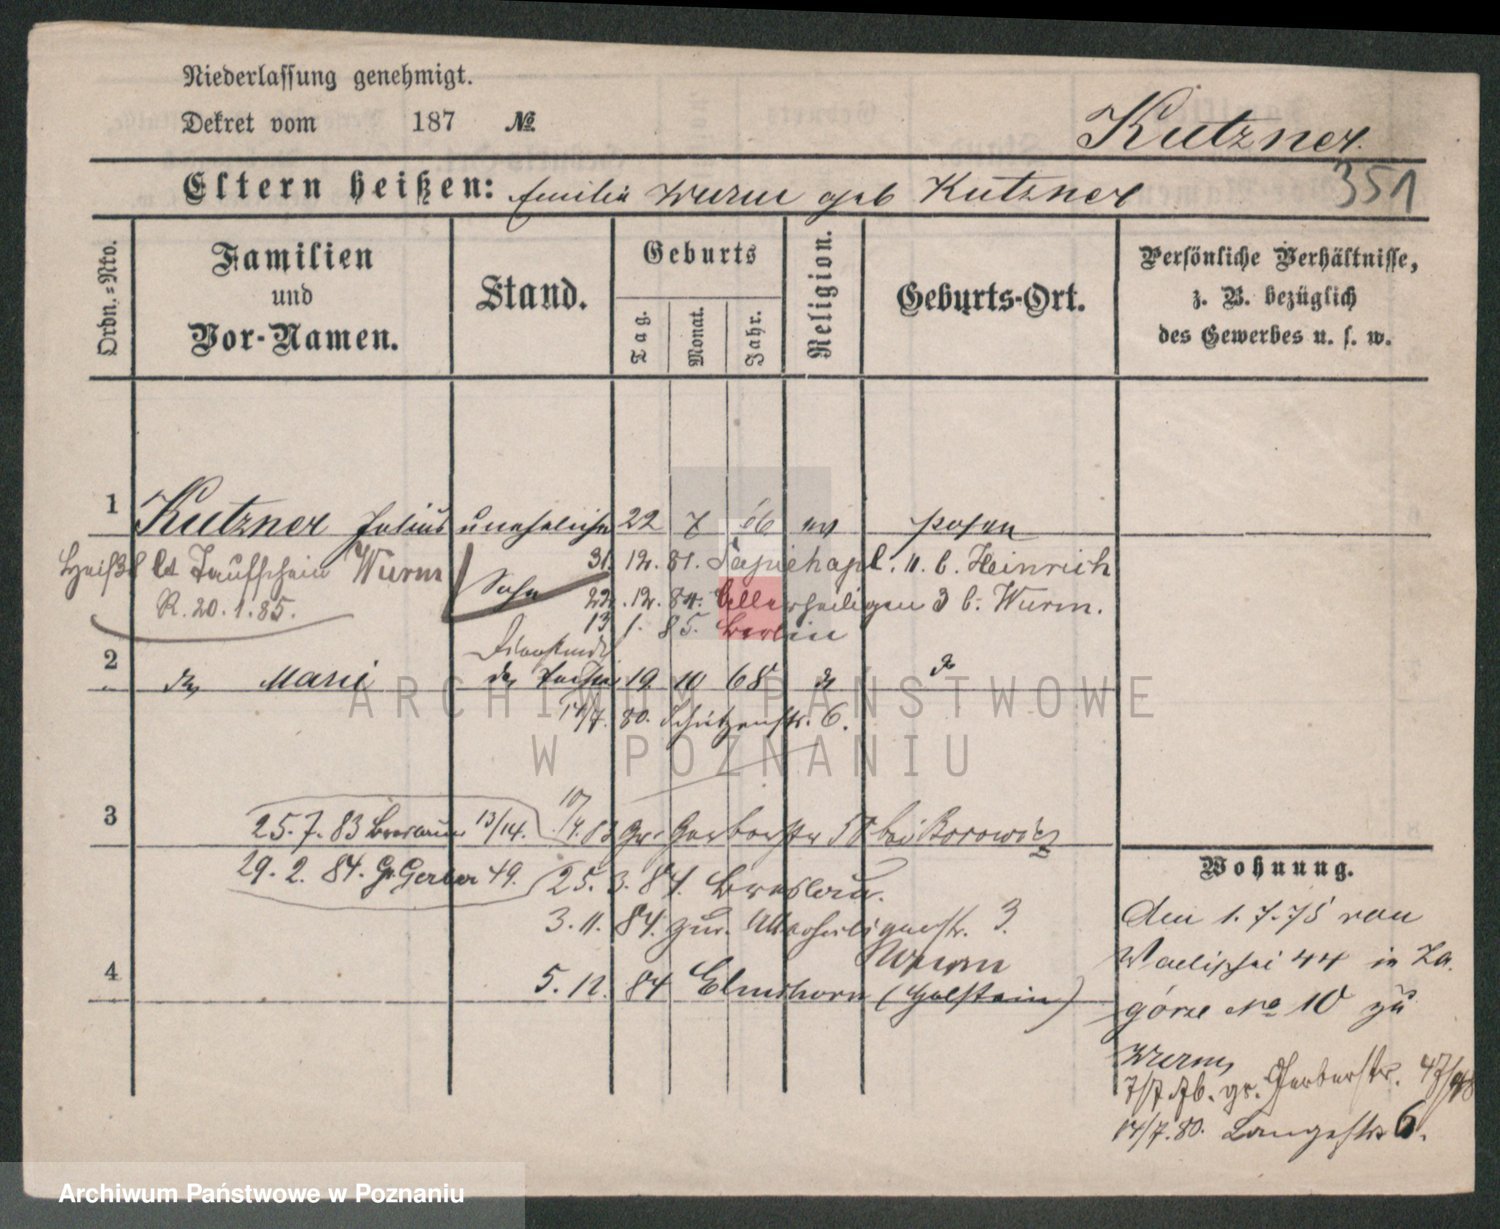 Niederlassung genehmigt.
Dekret vom 187 №
Kutzner.
Eltern heißen: Emilie Wurm geb Kutzner
351
Ordn.=Nro.
Familien und Vor-Namen.
Stand.
Geburts
Tag.
Monat.
Jahr.
Religion.
Geburts-Ort.
Persönliche Verhältnisse,
z. B. bezüglich
des Gewerbes u. s. w.
1 Kutzner Julius unehelicher 22 7 66 ev Posen
heißt lt Taufschein Wurm
R. 20.1.85.
Sohn
31. 12. 81. Sapiehapl. 11. b. Heinrich
22. 12. 84. Allerheiligen 3 b. Wurm.
13 1. 85. Berlin
2 do Marie do Tochter 19 10 68 do do
14/7. 80. Schützenstr. 6.
3
25.7.83 Breslau 13/14.
10/4. 83 Gr. Gerberstr 58 bei Borowicz
29. 2. 84. Gr. Gerber 49.
25. 3. 84. Breslau.
3. 11. 84. zur. Allerheiligenstr. 3.
Wurm
4
5. 12. 84 Elmshorn (Holstein)
Wohnung.
Am 1.7.75 von
Wallischei 44 in Za.
górze No 10 zu
Wurm,
7/7 76. gr. Gerberstr. 47/48
14/7. 80. Langestr 6.
ARCHIWUM PAŃSTWOWE
W POZNANIU
Archiwum Państwowe w Poznaniu